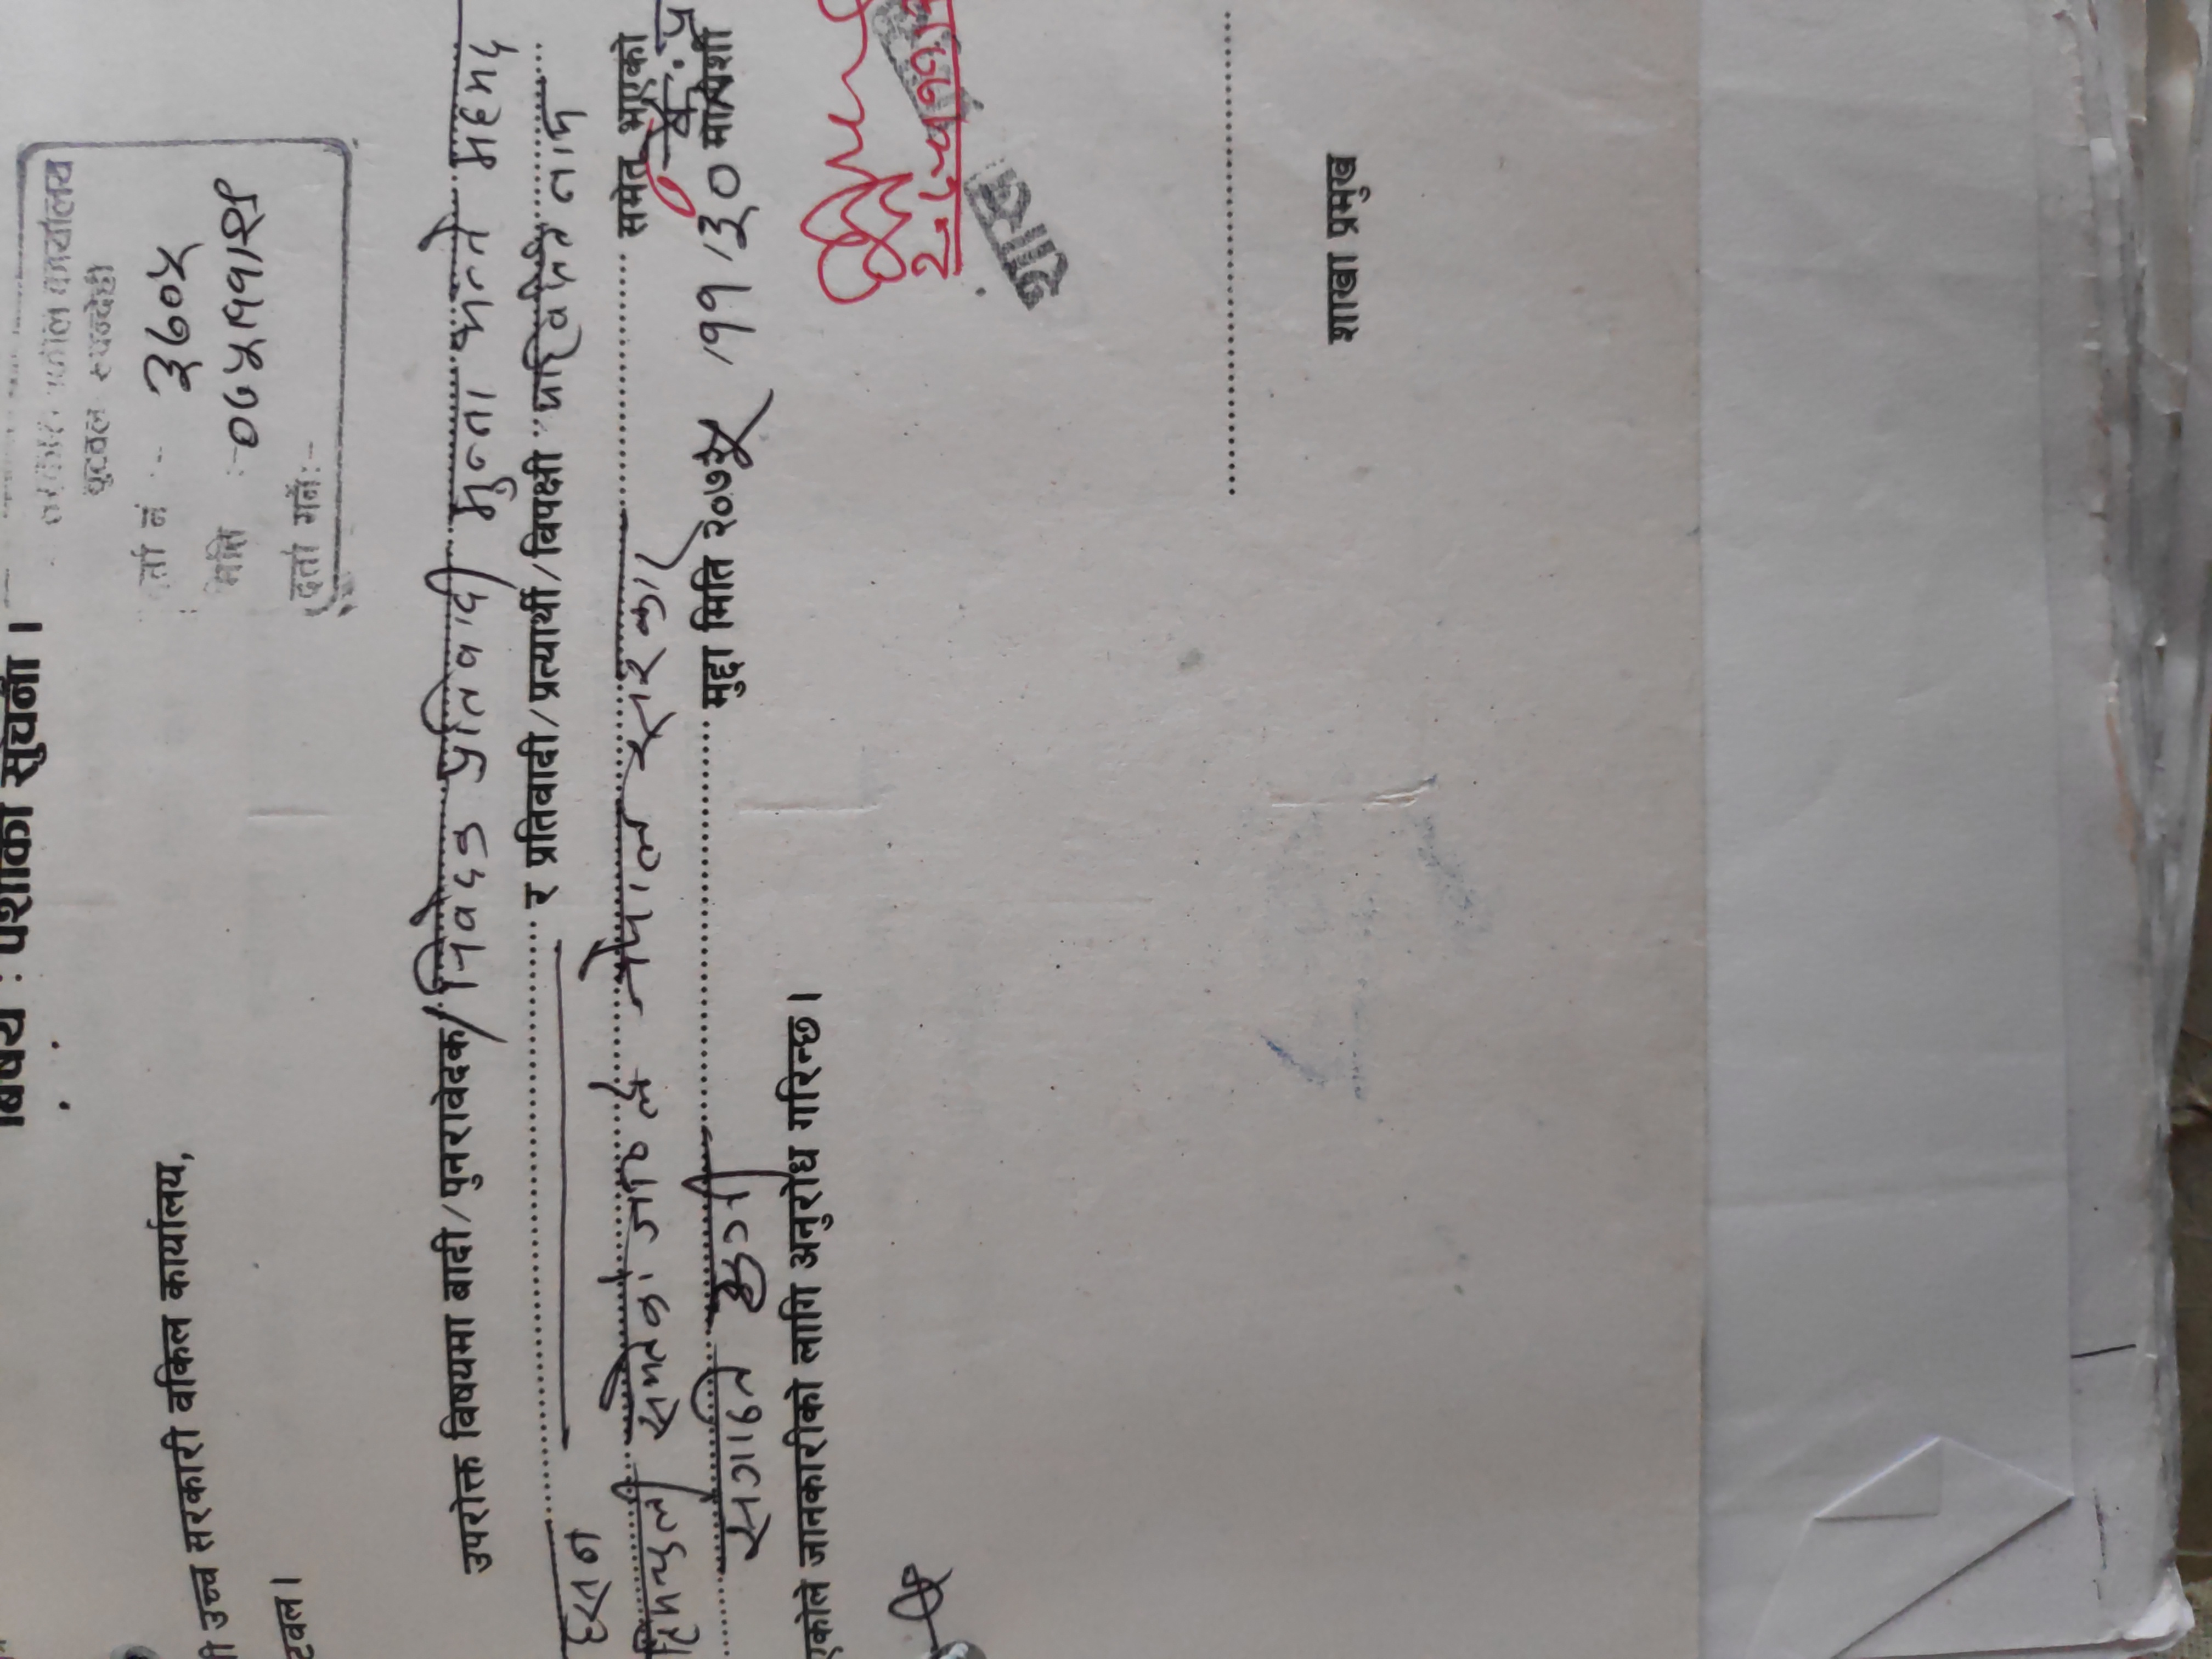 बिषय : पेशीको सुचना ।
सरकारी वकील कार्यालय
बुटवल रुपन्देही
र्ता नं :- ३७०५
मिति :- ०७५।११।२९
दर्ता गर्ने:-
ी उच्च सरकारी वकिल कार्यालय,
टवल ।
उपरोक्त विषयमा बादी/पुनरावेदक/ निवेदक प्रतिवादी मुन्ना भन्ने महमद
हसन र प्रतिवादी/प्रत्यार्थी/विपक्षी परिवर्तित नाम
हिमचुली समेतको जाहेरीले नेपाल सरकार समेत भएको
संगठित ठगी मुद्दा मिति २०७५ /११/३० मा पेशी
एकोले जानकारीको लागि अनुरोध गरिन्छ ।
शाखा
शाखा प्रमुख